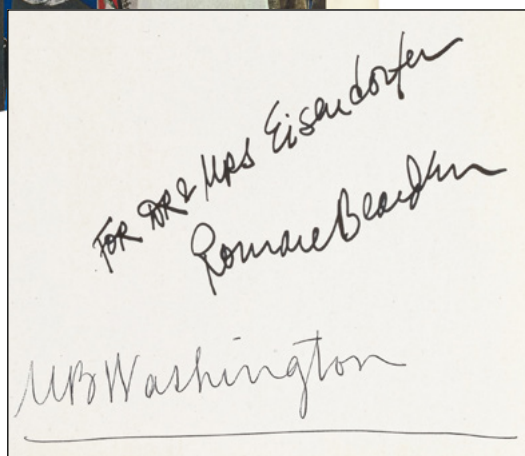 FOR DR & MRS Eisendorfer
Romare Bearden
MBWashington